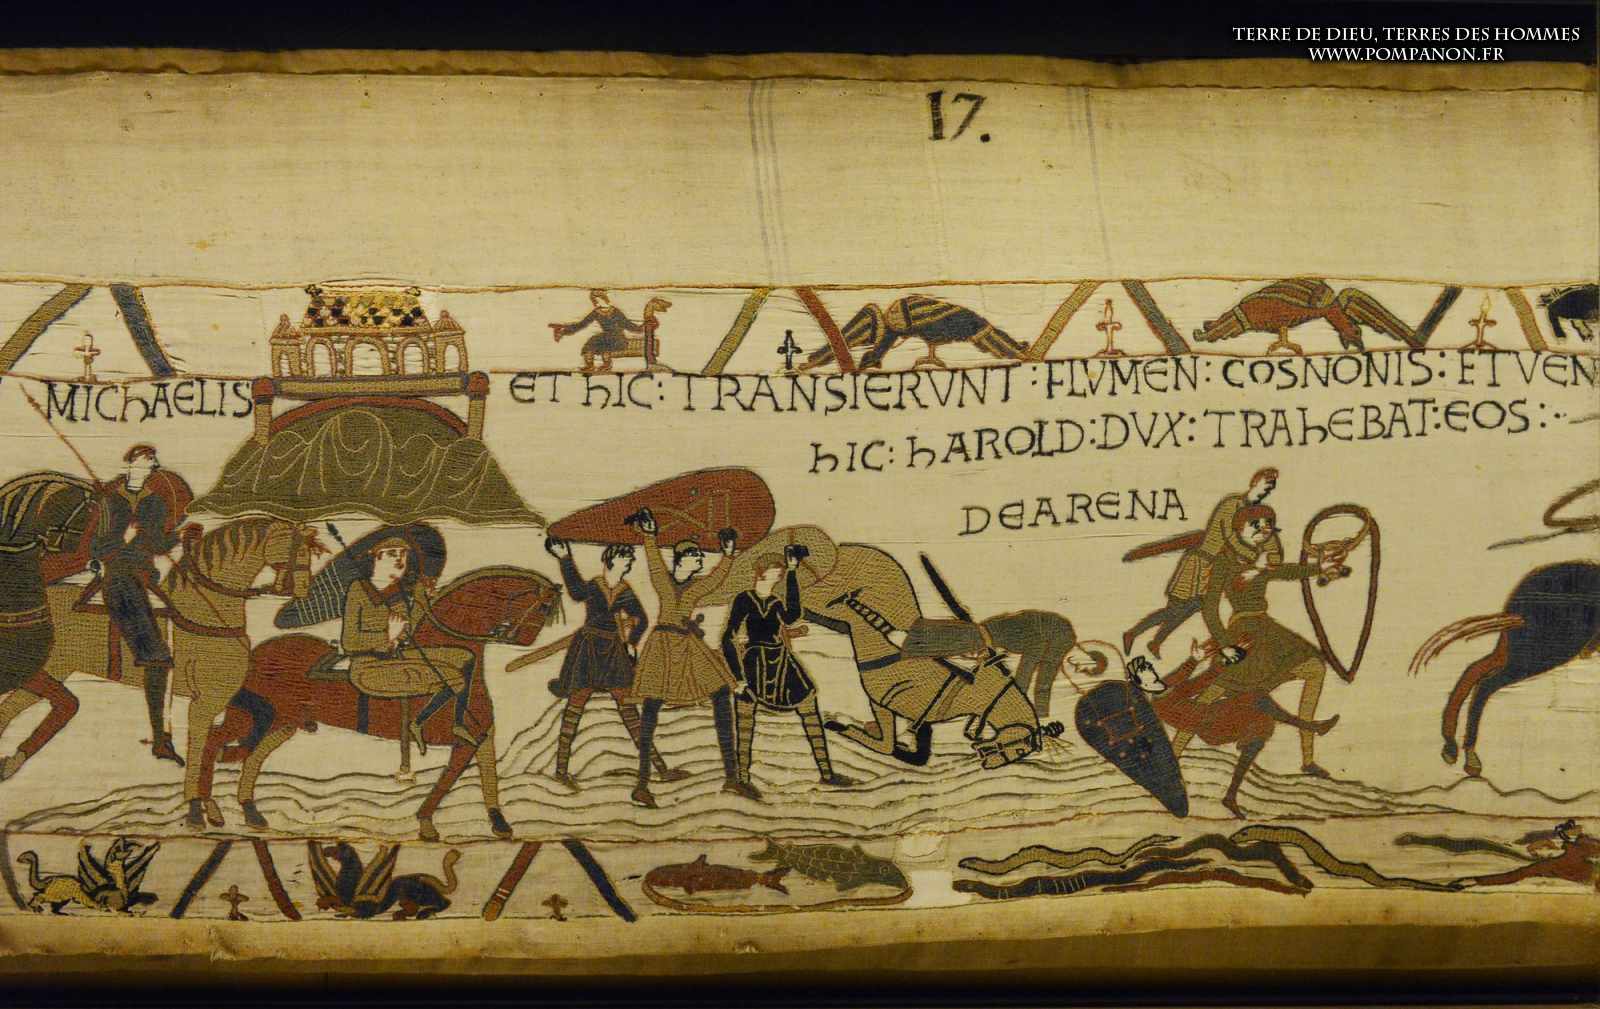 TERRE DE DIEU, TERRES DES HOMMES
WWW.POMPANON.FR
17.
MIChAELIS
ET hIC: TRANSIERVNT: FLVMEN: COSNONIS: ETVEN
hIC: hAROLD: DVX: TRAhEBAT: EOS:
DEARENA